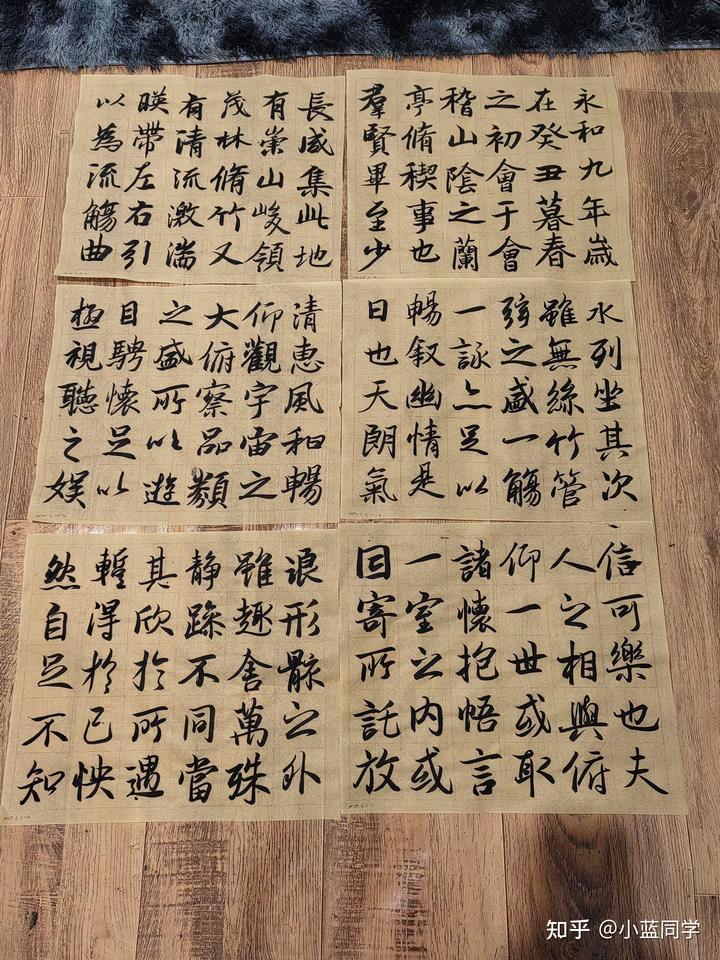 永和九年歲
在癸丑暮春
之初會于會
稽山陰之蘭
亭脩稧事也
羣賢畢至少
長咸集此地
有崇山峻領
茂林脩竹又
有清流激湍
暎帶左右引
以為流觴曲
水列坐其次
雖無絲竹管
弦之盛一觴
一詠亦足以
暢叙幽情是
日也天朗氣
清惠風和暢
仰觀宇宙之
大俯察品類
之盛所以遊
目騁懷足以
極視聽之娛
信可樂也夫
人之相與俯
仰一世或取
諸懷抱悟言
一室之内或
因寄所託放
浪形骸之外
雖趣舍萬殊
静躁不同當
其欣於所遇
蹔得於己怏
然自足不知
知乎 @小蓝同学